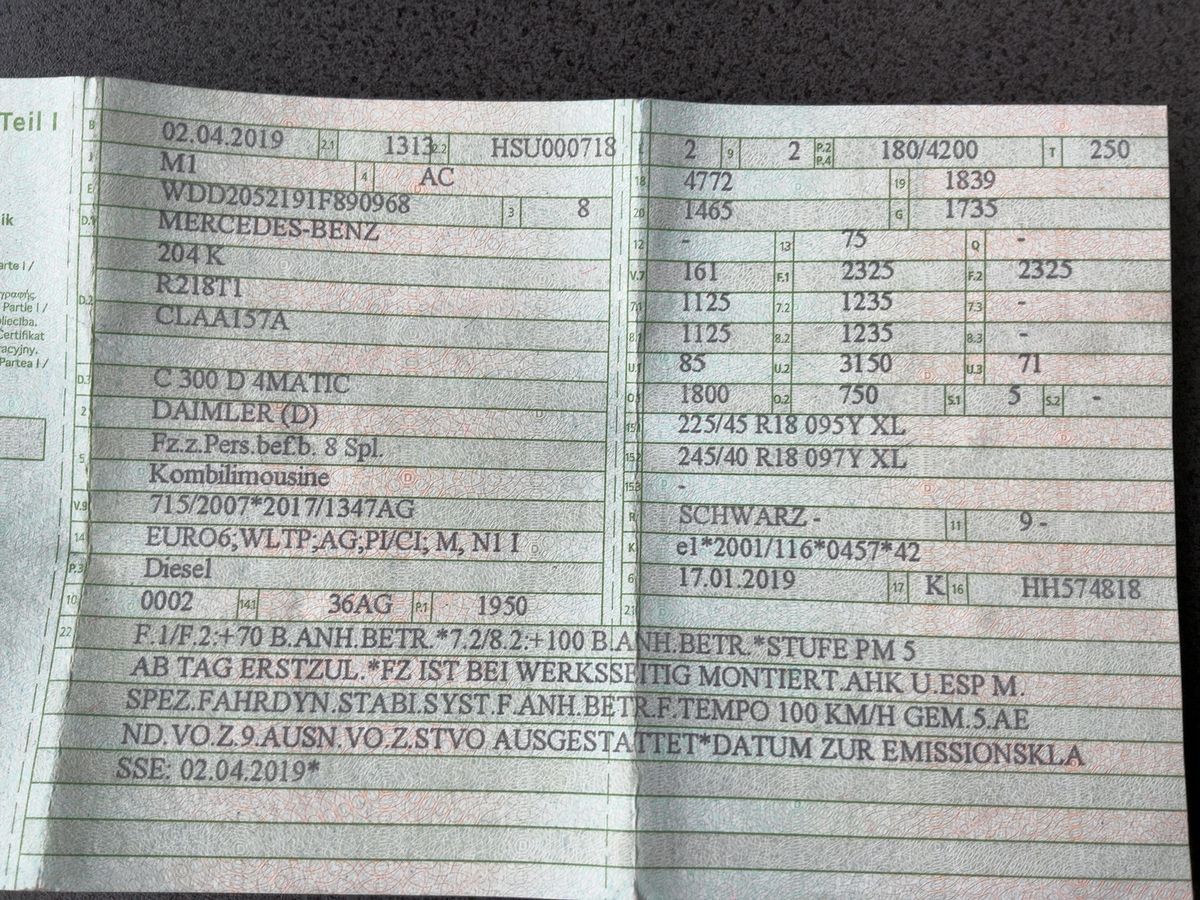 Teil I
ik
arte I /
γραφής,
Partie I /
pliecība.
Certifikat
racyjny.
Partea I /
B 02.04.2019 2.1 1313 2.2 HSU000718
J M1 4 AC
E WDD2052191F890968 3 8
D.1 MERCEDES-BENZ
204 K
D.2 R218T1
CLAA157A
D.3 C 300 D 4MATIC
2 DAIMLER (D)
5 Fz.z.Pers.bef.b. 8 Spl.
Kombilimousine
V.9 715/2007*2017/1347AG
14 EURO6;WLTP;AG;PI/CI; M, N1 I
P.3 Diesel
10 0002 14.1 36AG P.1 1950
L 2 9 2 P.2 P.4 180/4200 T 250
18 4772 19 1839
20 1465 G 1735
12 - 13 75 Q -
V.7 161 F.1 2325 F.2 2325
7.1 1125 7.2 1235 7.3 -
8.1 1125 8.2 1235 8.3 -
U.1 85 U.2 3150 U.3 71
O.1 1800 O.2 750 S.1 5 S.2 -
15.1 225/45 R18 095Y XL
15.2 245/40 R18 097Y XL
15.3 -
R SCHWARZ - 11 9 -
K e1*2001/116*0457*42
6 17.01.2019 17 K 16 HH574818
21
22 F.1/F.2:+70 B.ANH.BETR.*7.2/8.2:+100 B.ANH.BETR.*STUFE PM 5
AB TAG ERSTZUL.*FZ IST BEI WERKSSEITIG MONTIERT.AHK U.ESP M.
SPEZ.FAHRDYN.STABI.SYST.F.ANH.BETR.F.TEMPO 100 KM/H GEM.5.AE
ND.VO.Z.9.AUSN.VO.Z.STVO AUSGESTATTET*DATUM ZUR EMISSIONSKLA
SSE: 02.04.2019*